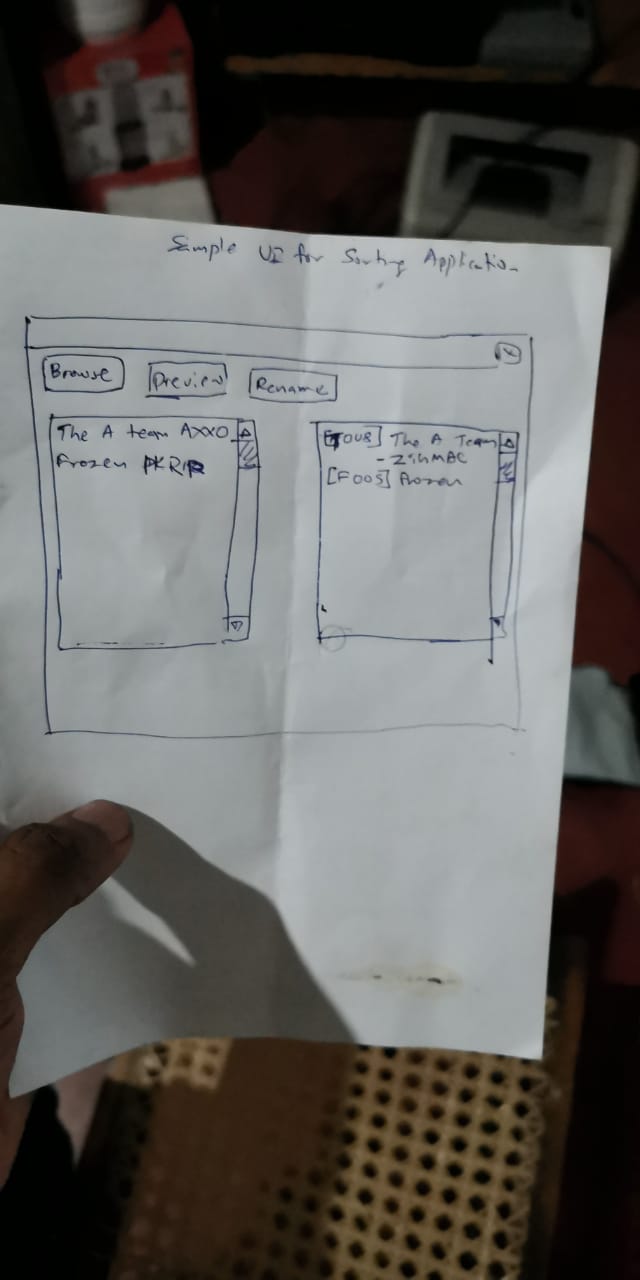 Sample UI for Sorting Application
X
Browse
Preview
Rename
The A team AXXO
Frozen PKRIP
[T008] The A Team
- ZihMAC
[F005] Frozen